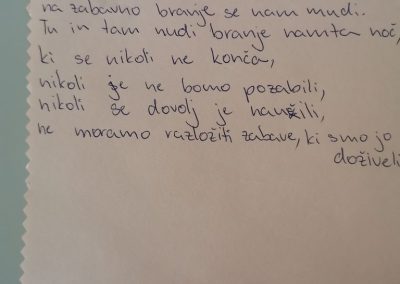 na zabavno branje se nam mudi.
Tu in tam nudi branje namta noč,
ki se nikoli ne konča,
nikoli je ne bomo pozabili,
nikoli se dovolj je naužili,
ne moramo razložiti zabave, ki smo jo
doživeli